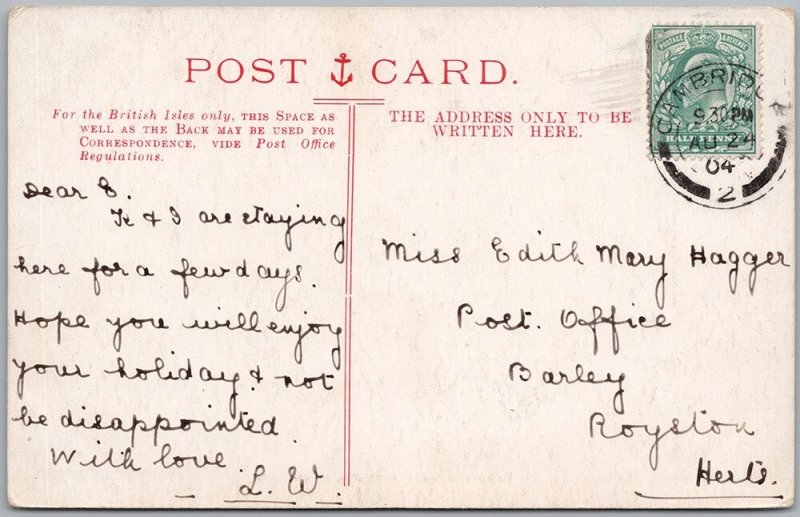 POST CARD.
For the British Isles only, THIS SPACE AS
WELL AS THE BACK MAY BE USED FOR
CORRESPONDENCE, VIDE Post Office
Regulations.
THE ADDRESS ONLY TO BE
WRITTEN HERE.
POSTAGE & REVENUE
HALF PENNY
CAMBRIDGE
9.30PM
AU 24
04
2
Dear E.
K & I are staying
here for a few days.
Hope you will enjoy
your holiday & not
be disappointed
With love.
L. W.
Miss Edith Mary Hagger
Post. Office
Barley
Royston
Herts.